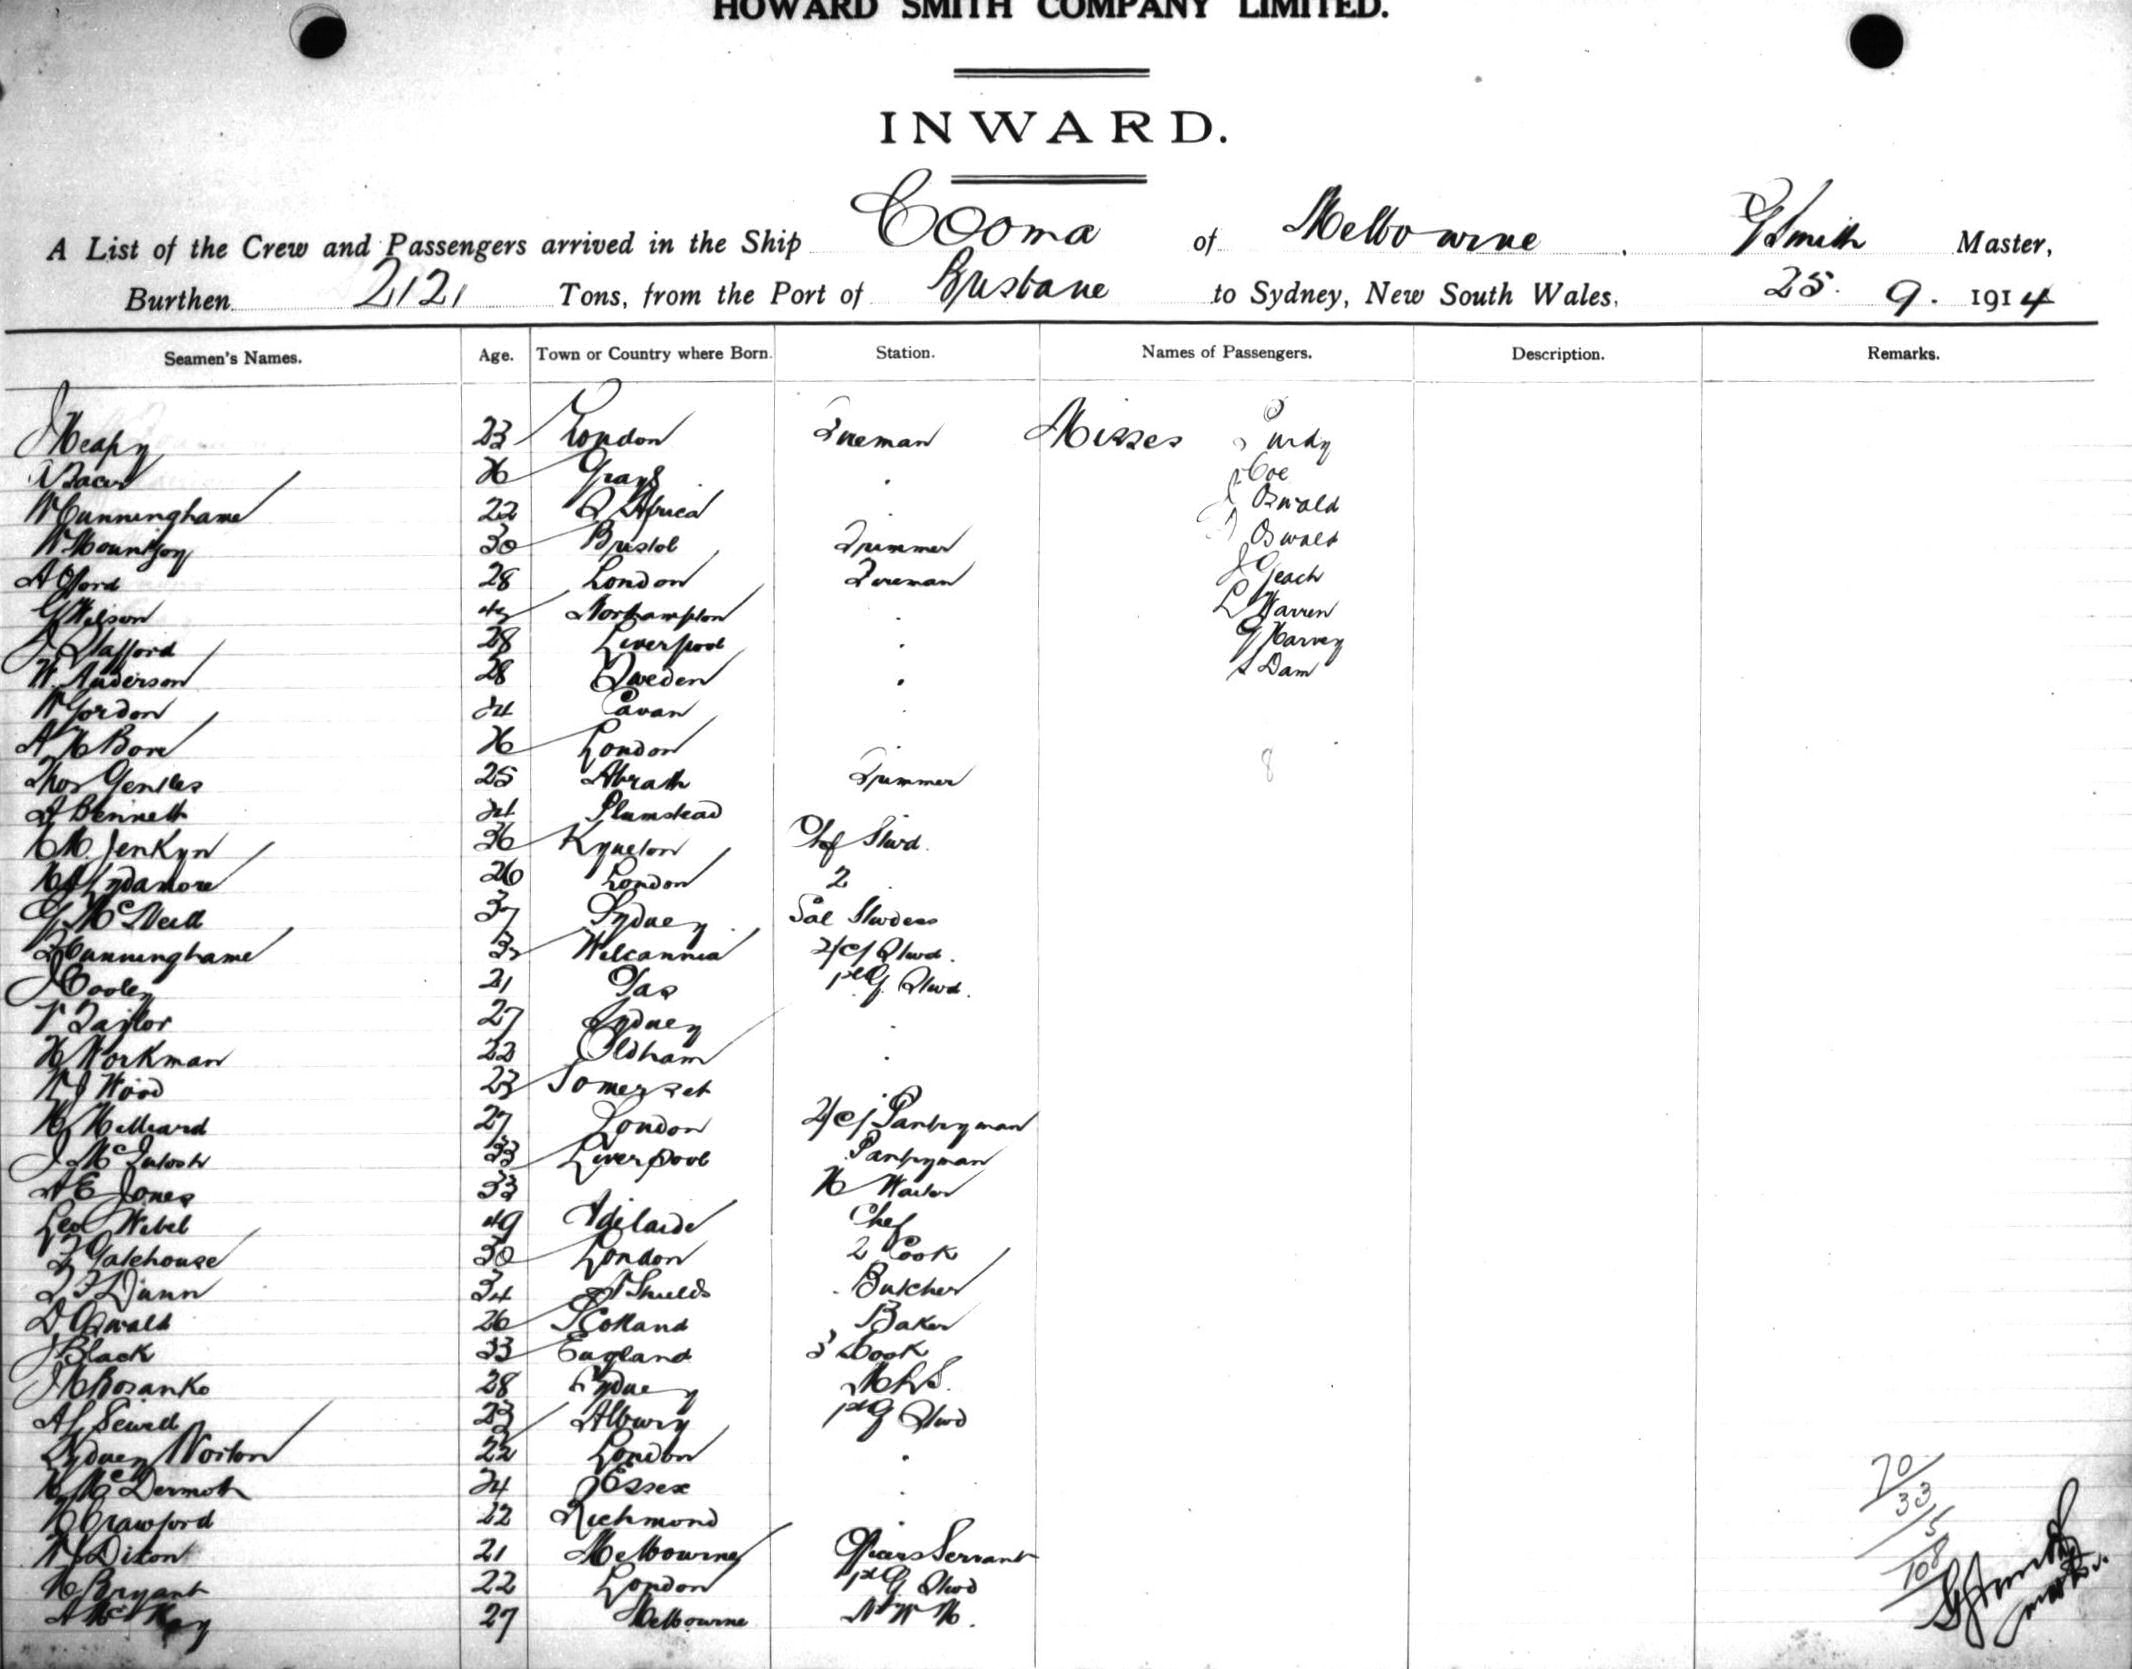 HOWARD SMITH COMPANY LIMITED.
INWARD.
A List of the Crew and Passengers arrived in the Ship Cooma of Melbourne, G Smith Master,
Burthen 2121 Tons, from the Port of Brisbane to Sydney, New South Wales, 25. 9. 1914
Seamen's Names. Age. Town or Country where Born. Station. Names of Passengers. Description. Remarks.
J Heapy 23 London Fireman Misses Purdy
26 Grays . Coe
W Cunninghame 22 S Africa . Oswald
W Mountjoy 30 Bristol Trimmer Oswald
28 London Fireman J Geach
G Wilson Northampton . L Warren
J Stafford 28 Liverpool . G Harvey
W. Anderson 28 Sweden . S Dam
W Gordon 24 Cavan .
A H Bone 26 London . 8
Thos Gentles 25 Abrath Trimmer
A Bennett 24 Plumstead
H M Jenkyn 36 Kyneton Chf Stwd.
H Lydamore 26 London 2
G McNeill 37 Sydney Sal Stwdess
Cunninghame Wilcannia 2/Cl Stwd.
J Cooley 21 Tas Stwd.
V Taylor 27 Sydney .
H Workman 22 Oldham .
W J Wood 23 Somerset
H Hilliard 27 London 2/Cl Pantryman
J McIntosh 33 Liverpool Pantryman
A E Jones 33 H Waiter
Leo Wibel 49 Adelaide Chef
F Gatehouse 30 London 2 Cook
T F Dunn 34 N Shields Butcher
D Oswald 26 Scotland Baker
J Black 33 England 3 Cook
J H Bosanko 28 Sydney
A L Sewell 23 Albury Stwd
Sydney Norton 22 London .
H McDermott 24 Essex .
H Crawford 22 Richmond .
W J Dixon 21 Melbourne Officers Servant
H Bryant 22 London Stwd
A McKay 27 Melbourne
70
33
5
108
G Smith
master